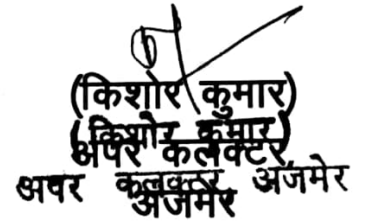 (किशोर कुमार)
(किशोर कुमार)
अपर कलेक्टर,
अपर कलक्टर अजमेर
अजमेर